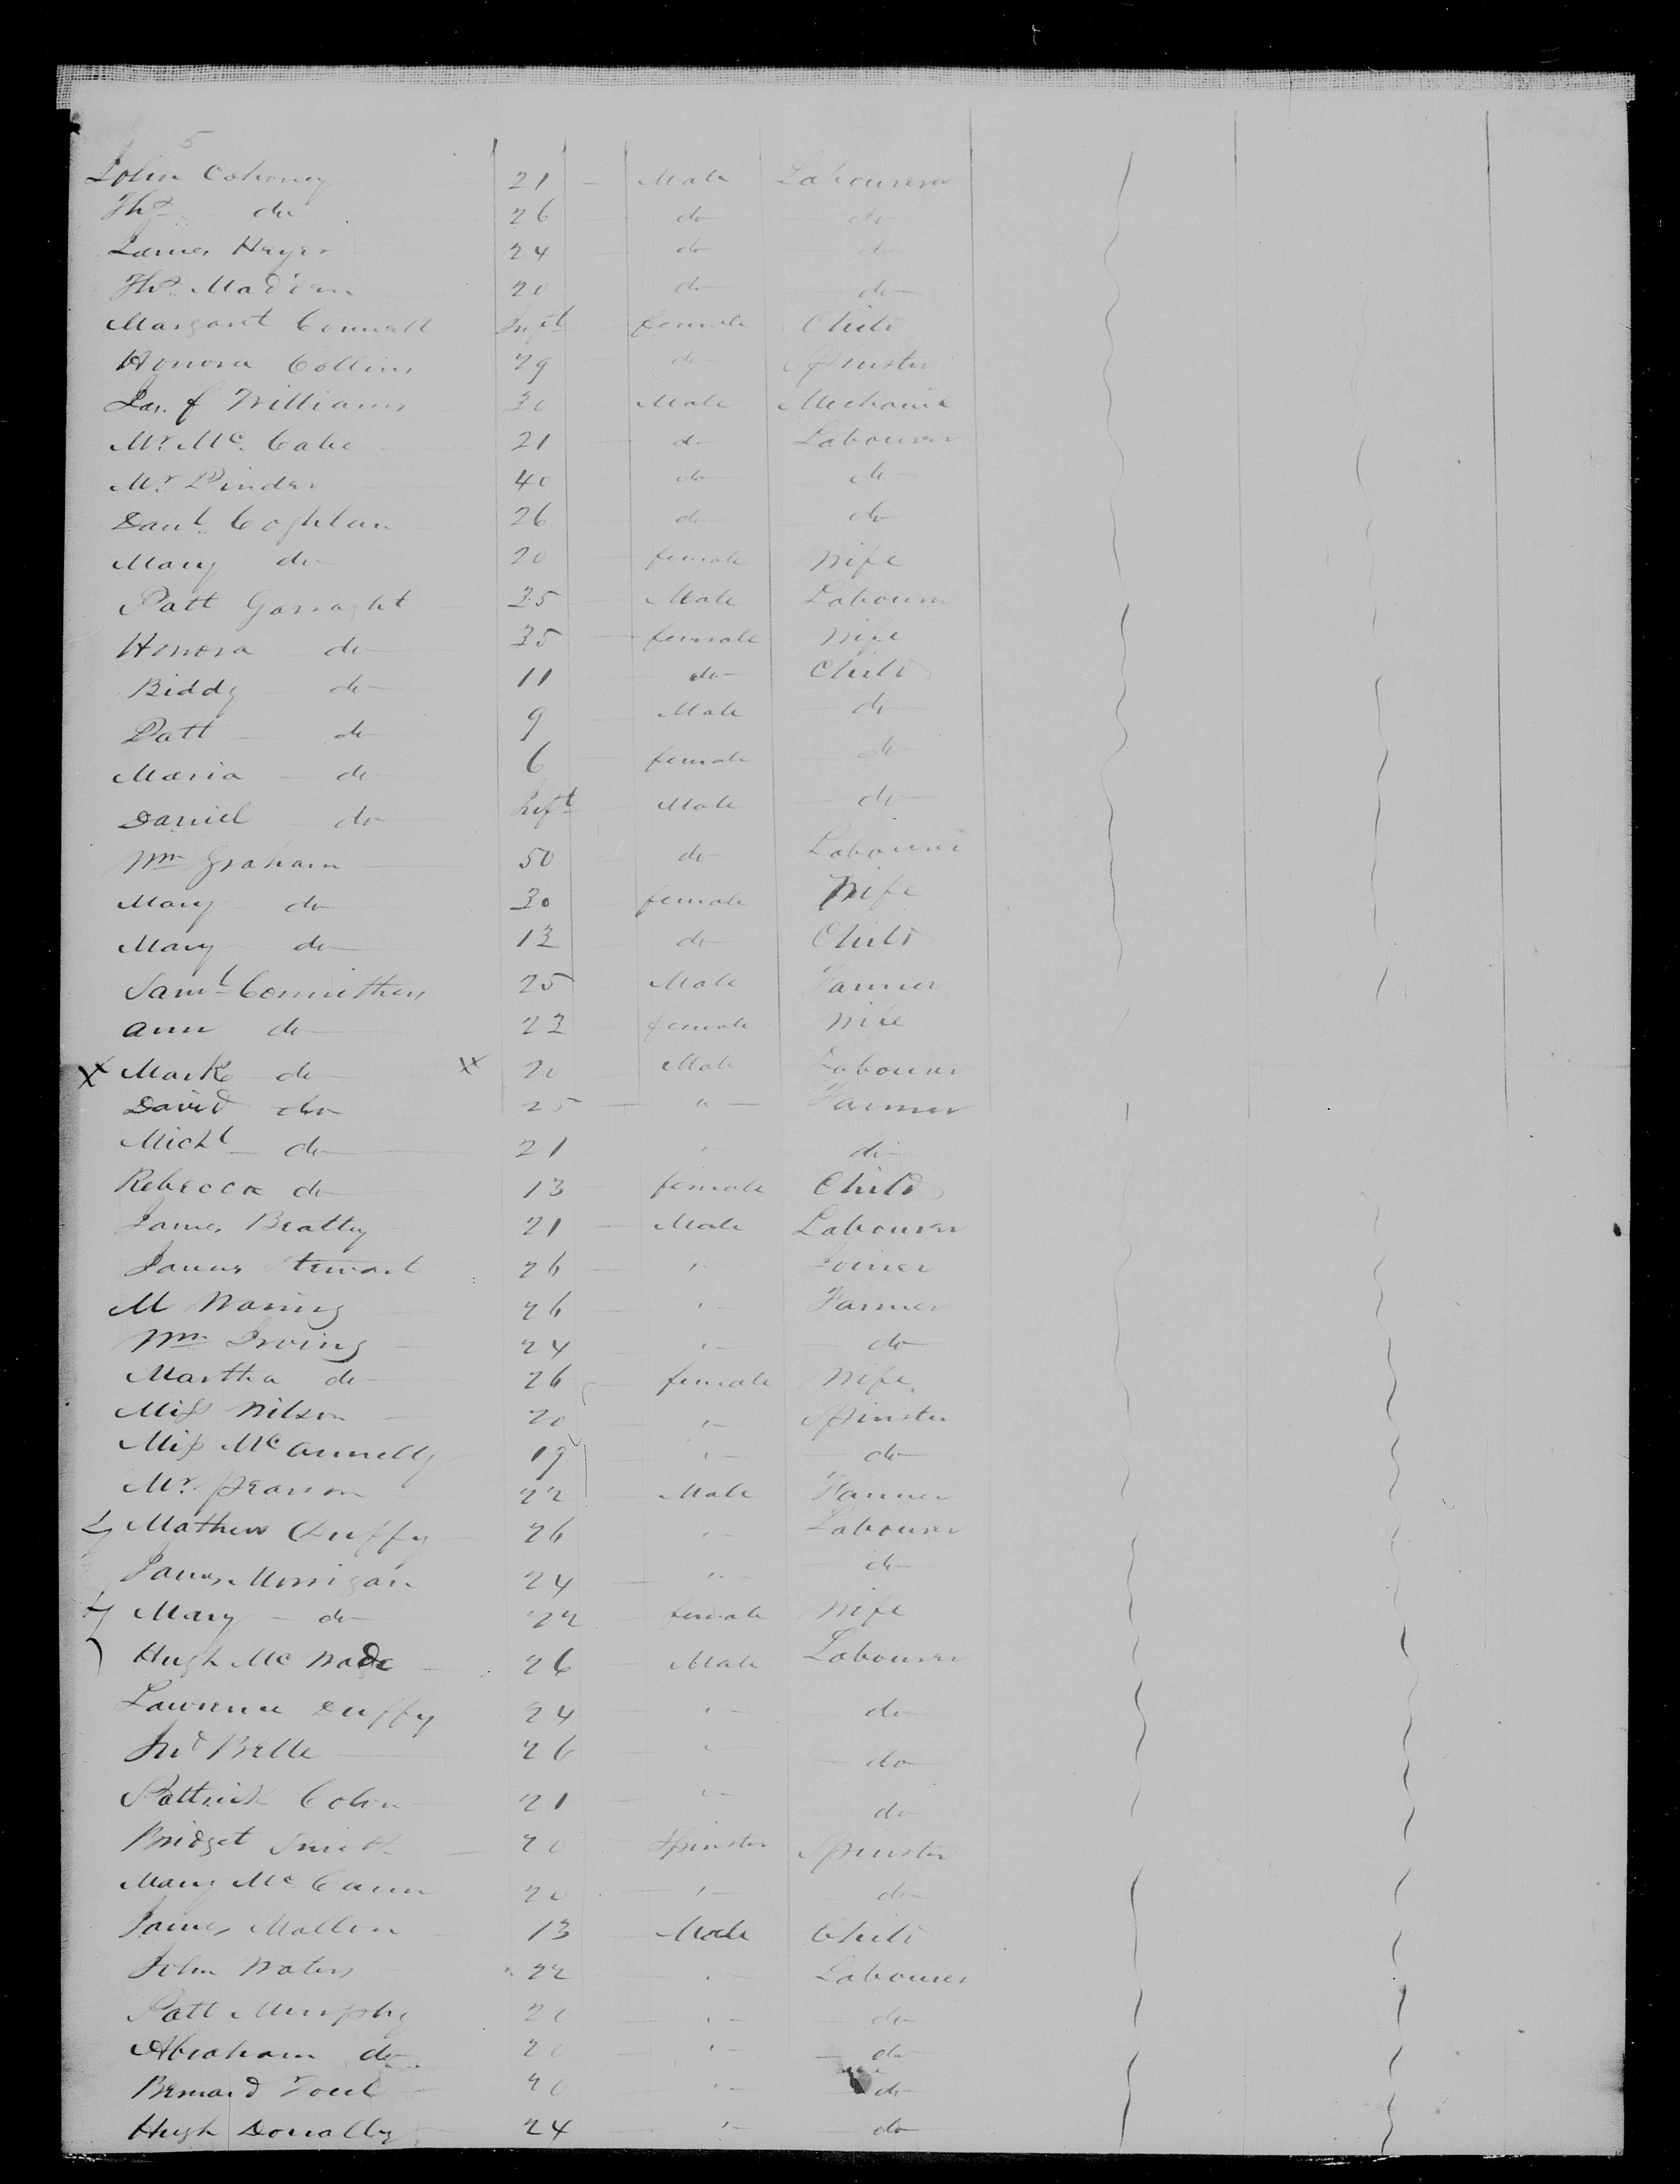 5
John Cohoney 21 Male Labourer
Thos do 26 do do
James Hayes 24 do do
Thos Madian 20 do do
Margaret Connell Inft female Child
Honora Collins 29 do Spinster
Jas. f Williams 30 Male Mechanic
Mr. Mc. Cabe 21 do Labourer
Mr. Pinder 40 do do
Danl. Coghlan 26 do do
Mary do 20 female Wife
Patt Garraght 35 Male Labourer
Honora do 35 female Wife
Biddy do 11 do Child
Patt do 9 Male do
Maria do 6 female do
Daniel do Inft Male do
Wm Graham 50 do Labourer
Mary do 30 female Wife
Mary do 13 do Child
Saml 25 Male Farmer
Ann do 23 female Wife
X Mark do X 20 Male Labourer
David do 25 " Farmer
Michl do 21 " do
Rebecca do 13 female Child
James Beatty 21 Male Labourer
James Stewart 26 " Joiner
M Waring 26 " Farmer
Wm Irving 24 " do
Martha do 26 female Wife
Miss Wilson 20 " Spinster
Miss McAnnelly 19 " do
Mr. Pearson 22 Male Farmer
Mathew Duffy 26 " Labourer
James Morrigan 24 " do
Mary do 22 female Wife
Hugh Mc Wade 26 Male Labourer
Lawrence Duffy 24 " do
Jno Belle 26 " do
Pattrick 21 " do
Bridget Smith 20 Spinster Spinster
Mary McCann 20 " do
James Mallon 13 Male Child
John Waters 22 " Labourer
Patt Murphy 20 " do
Abraham do 20 " do
Bernard 20 " do
Hugh Donally 24 " do